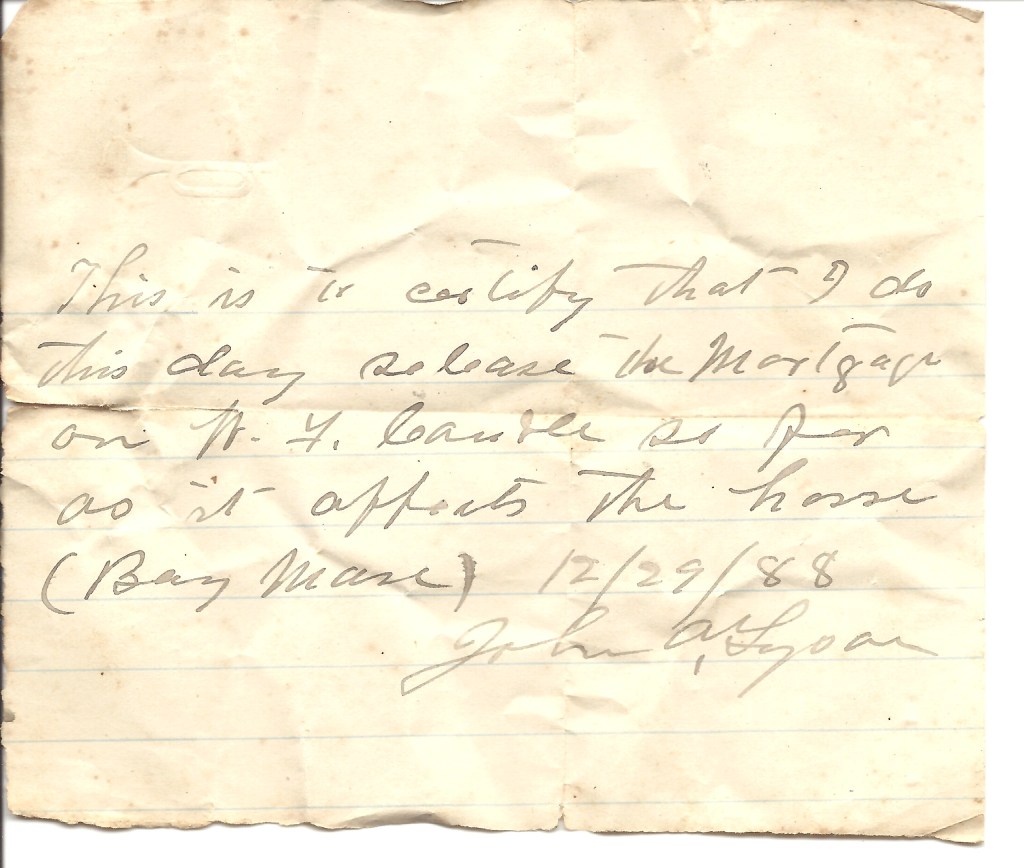 This is to certify that I do
this day release the Mortgage
on W. F. Caudle so far
as it affects the horse
(Bay Mare) 12/29/88
John A. Lyon